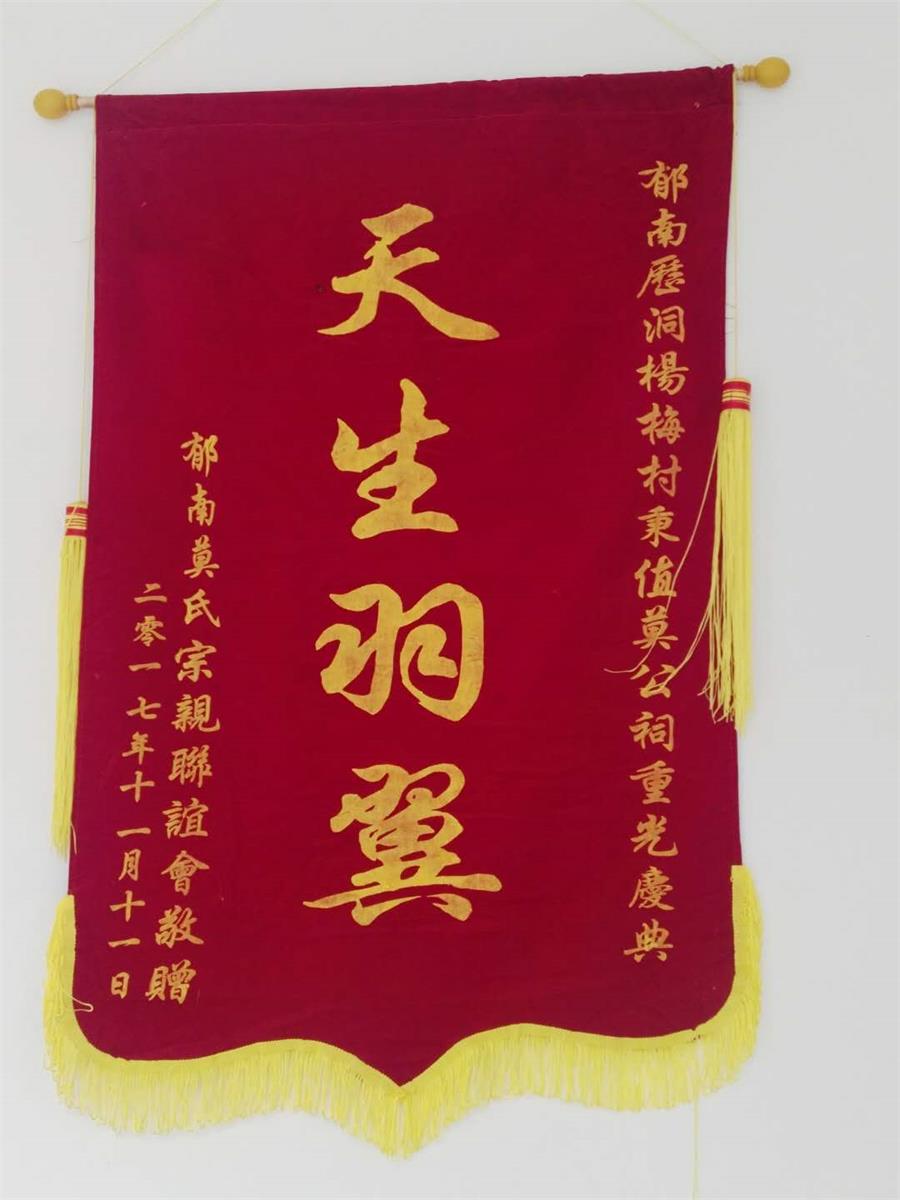 郁南歷洞楊梅村秉值莫公祠重光慶典
天生羽翼
郁南莫氏宗親聯誼會敬贈
二零一七年十一月十一日